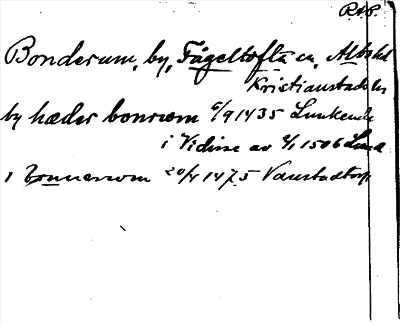 R.A.P.
Bonderum, by, Fågeltofta sn, Albo hd
Kristianstads län
by hæder bonrøm 6/9 1435 Lunkende
i Vidisse av 2/1 1506 Lund
i Bonnerom 20/4 1475 Vanstadtorp